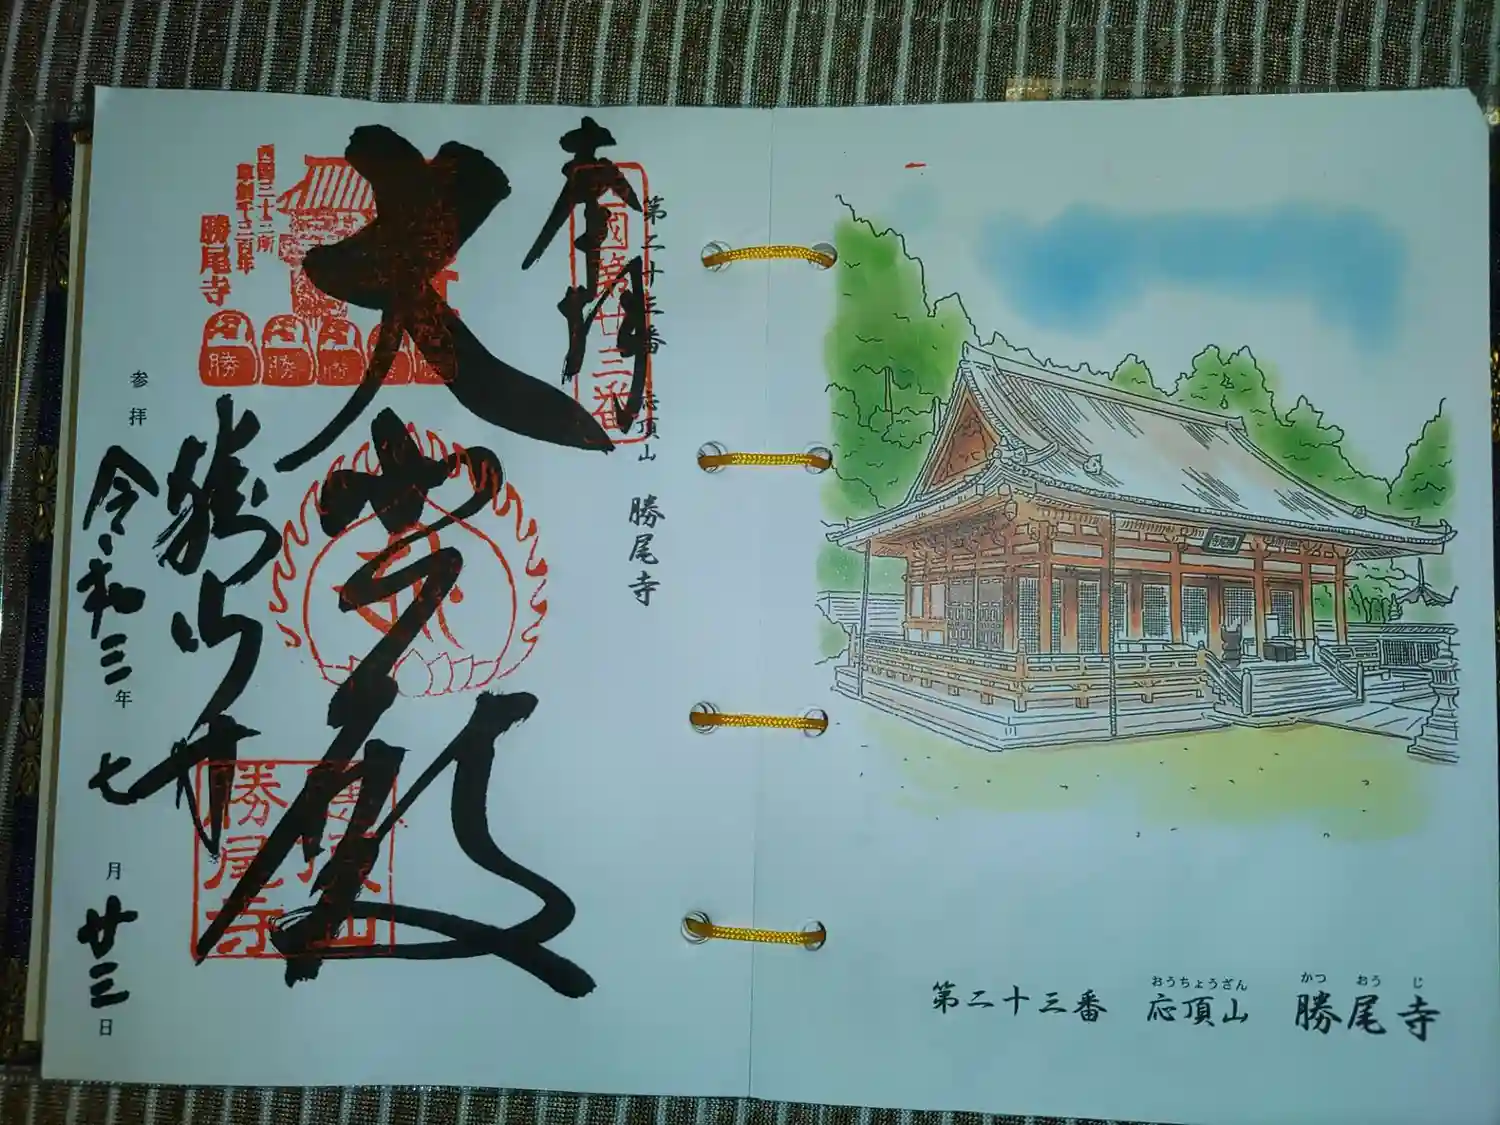 奉拝
國第廿三番
第二十三番 応頂山 勝尾寺
大悲殿
西國三十三所
草創千三百年
勝尾寺
勝
勝
勝
勝尾寺
応頂山
勝尾寺
参拝 令和三年 七月 廿三日
第二十三番 応頂山 勝尾寺
おうちょうざん かつ おう じ